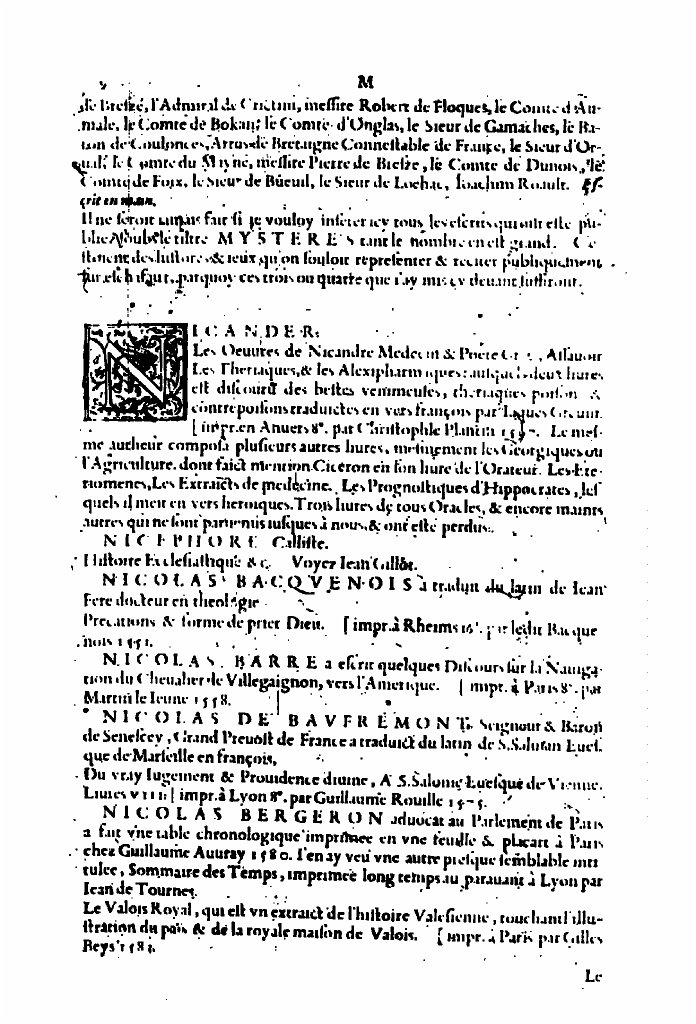 M
de Brefzé, l'Admiral de Coetiui, meffire Robert de Floques, le Comte d'Au-
male, le Comte de Bokan, le Comte d'Onglas, le Sieur de Gamaches, le Ba-
ron de Coulonces, Artus de Bretaigne Conneftable de France, le Sieur d'Or-
le Comte du meffire Pierre de Brefze, le Comte de Dunois, le
Comte de Foix, le Sieur de Bueuil, le Sieur de Lochac, Ioachim Roault. Ef-
crit en main.
Il ne feroit iamais fait fi ie vouloy inferer icy tous les efcrits qui ont efté pu-
blie foubs le tiltre MYSTERES tant le nombre en eft grand. Ce
ftoient des hiftoires & ieux qu'on fouloit reprefenter & reciter publiquement
fur efchafaut, parquoy ces trois ou quatre que i'ay mis cy deuant fuffiront.
NICANDER.
Les Oeuures de Nicandre Medecin & Poëte Grec, Affauoir
Les Theriaques, & les Alexipharmaques: aufquels deux liures
eft difcouru des beftes venimeufes, theriaques poifon &
contrepoifons traduictes en vers françois par Iaques Greuin.
[impr. en Anuers 8°. par Chriftophle Plantin Le mef-
me autheur compofa plufieurs autres liures, mefmement les Georgiques ou
l'Agriculture, dont faict mention Ciceron en fon liure de l'Orateur. Les Ete-
riomenes, Les Extraicts de medecine. Les Prognoftiques d'Hippocrates, lef
quels il meit en vers heroiques. Trois liures de tous Oracles, & encore maints
autres qui ne font paruenus iufques à nous, & ont efté perdus.
NICEPHORE Callifte.
Hiftoire Ecclefiaftique &c. Voyez Iean Gillot.
NICOLAS BACQVENOIS a traduit du latin de Iean
Fere docteur en theologie
Precations & forme de prier Dieu. [impr. à Rheims 16°. par ledit Bacque
nois 1551.
NICOLAS BARRE a efcrit quelques Difcours fur la Nauiga-
tion du Cheualier de Villegaignon, vers l'Amerique. [impr. à Paris 8°. par
Martin le Ieune 1558.
NICOLAS DE BAVFREMONT, Seigneur & Baron
de Senefcey, Grand Preuoft de France a traduict du latin de S. Saluian Euef-
que de Marfeille en françois,
Du vray Iugement & Prouidence diuine, A S. Salone Euefque de Vienne.
Liures VIII [impr. à Lyon 8°. par Guillaume Rouille 1575.
NICOLAS BERGERON aduocat au Parlement de Paris
a fait vne table chronologique imprimee en vne feuille & placart à Paris
chez Guillaume Auuray 1580. I'en ay veu vne autre prefque femblable inti
tulee, Sommaire des Temps, imprimee long temps au parauant à Lyon par
Iean de Tournes.
Le Valois Royal, qui eft vn extraict de l'hiftoire Valefienne, touchant l'illu-
ftration du païs & de la royale maifon de Valois. [impr. à Paris par Gilles
Beys
Le